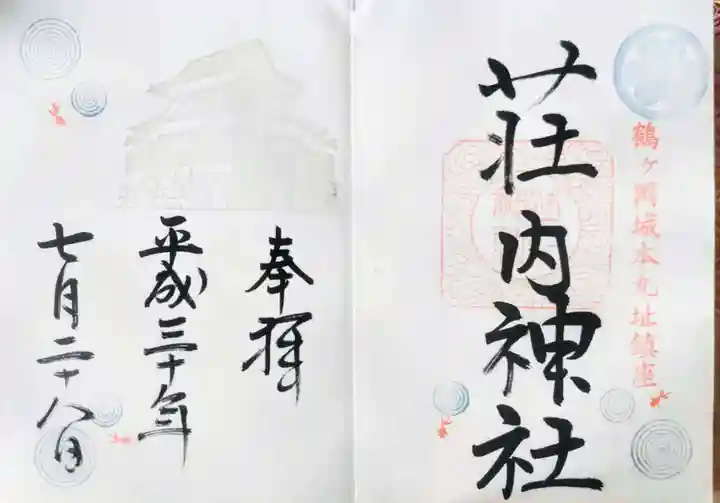 鶴ヶ岡城本丸址鎮座
荘内神社
奉拝
平成三十年
七月二十八日